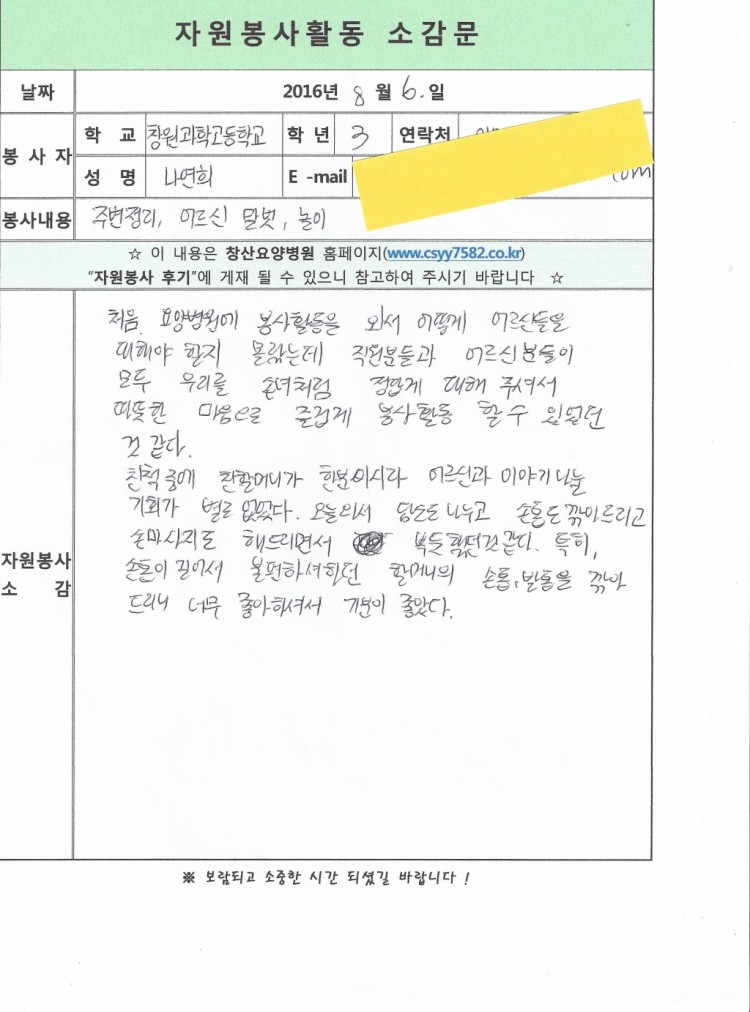 자원봉사활동 소감문
날짜 2016년 8월 6.일
봉사자 학 교 창원과학고등학교 학 년 3 연락처
성 명 나연희 E -mail com
봉사내용 주변정리, 어르신 말벗, 놀이
☆ 이 내용은 창산요양병원 홈페이지(www.csyy7582.co.kr)
“자원봉사 후기”에 게재 될 수 있으니 참고하여 주시기 바랍니다 ☆
자원봉사 소 감
처음 요양병원에 봉사활동을 와서 어떻게 어르신들을
대해야 할지 몰랐는데 직원분들과 어르신분들이
모두 우리를 손녀처럼 정답게 대해 주셔서
따뜻한 마음으로 즐겁게 봉사활동 할 수 있었던
것 같다.
친척 중에 친할머니가 한분이시라 어르신과 이야기 나눌
기회가 별로 없었다. 오늘 와서 담소도 나누고 손톱도 깎아드리고
손마사지도 해드리면서 뿌듯했던것 같다. 특히,
손톱이 길어서 불편하셔하던 할머니의 손톱, 발톱을 깎아
드리니 너무 좋아하셔서 기분이 좋았다.
※ 보람되고 소중한 시간 되셨길 바랍니다 !